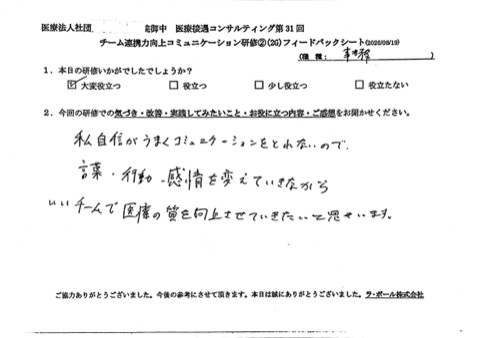 医療法人社団 御中 医療接遇コンサルティング第31回
チーム連携力向上コミュニケーション研修②(2G)フィードバックシート(2020/08/19)
(職種: 事務)
1.本日の研修いかがでしたでしょうか?
☑大変役立つ □役立つ □少し役立つ □役立たない
2.今回の研修での気づき・改善・実践してみたいこと・お役に立つ内容・ご感想をお聞かせください。
私自信がうまくコミュニケーションをとれないので、
言葉・行動・感情を変えていきながら
いいチームで医療の質を向上させていきたいと思います。
ご協力ありがとうございました。今後の参考にさせて頂きます。本日は誠にありがとうございました。ラ・ポール株式会社